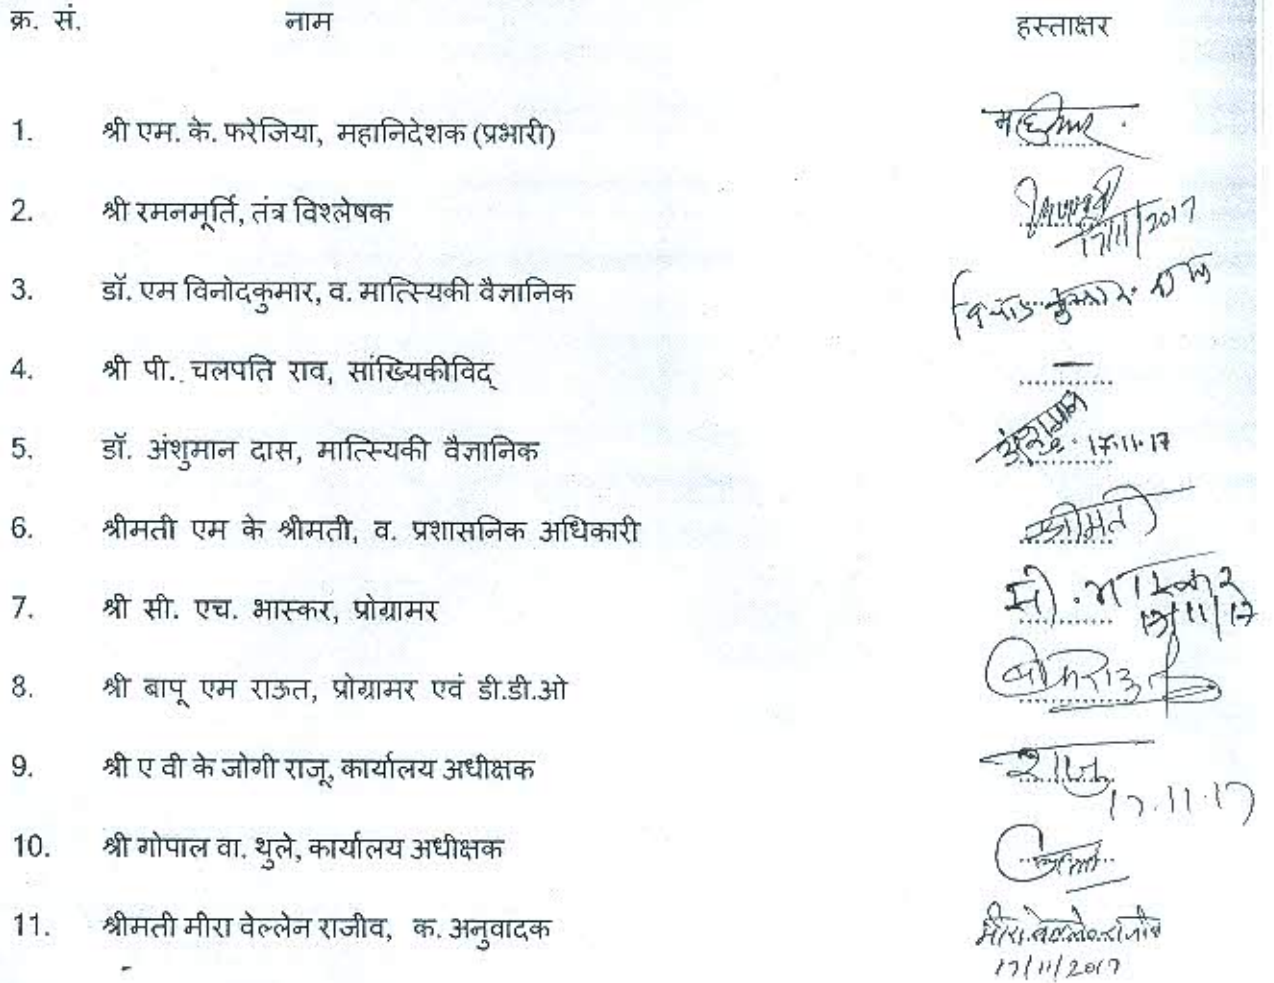 क्र. सं. नाम हस्ताक्षर
1. श्री एम. के. फरेजिया, महानिदेशक (प्रभारी)
2. श्री रमनमूर्ति, तंत्र विश्लेषक
17/11/2017
3. डॉ. एम विनोदकुमार, व. मात्स्यिकी वैज्ञानिक
4. श्री पी. चलपति राव, सांख्यिकीविद् —
5. डॉ. अंशुमान दास, मात्स्यिकी वैज्ञानिक अंशुमान 17.11.17
6. श्रीमती एम के श्रीमती, व. प्रशासनिक अधिकारी श्रीमती
7. श्री सी. एच. भास्कर, प्रोग्रामर सी. भास्कर
17/11/17
8. श्री बापू एम राऊत, प्रोग्रामर एवं डी.डी.ओ
9. श्री ए वी के जोगी राजू, कार्यालय अधीक्षक राजु
17.11.17
10. श्री गोपाल वा. थुले, कार्यालय अधीक्षक
11. श्रीमती मीरा वेल्लेन राजीव, क. अनुवादक मीरा वेल्लेन राजीव
17/11/2017